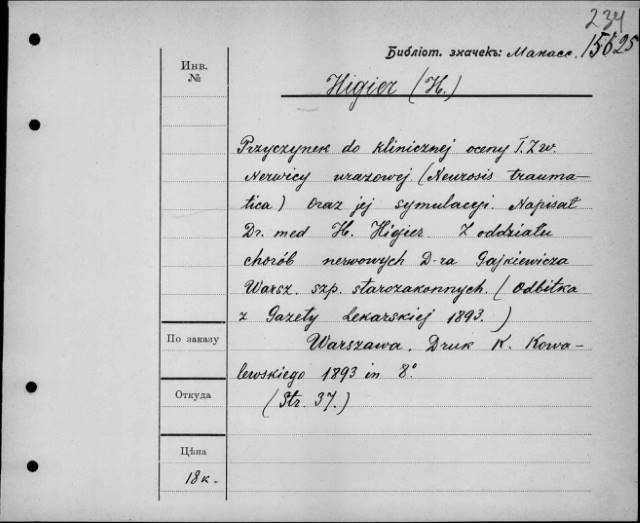 234
Библіот. значекъ: Манасс. 15625
Инв.
№
Higier (H.)
Przyczynek do klinicznej oceny T. Zw.
Nerwicy urazowej (Neurosis trauma-
tica) oraz jej symulacyi. Napisał
Dr. med H. Higier. Z oddziału
chorób nerwowych D-ra Gajkiewicza
Warsz. szp. starozakonnych. (Odbitka
z Gazety Lekarskiej 1893.)
По заказу
Warszawa. Druk K. Kowa-
lewskiego 1893 in 8°.
Откуда
(Str. 37.)
Цѣна
18 к.